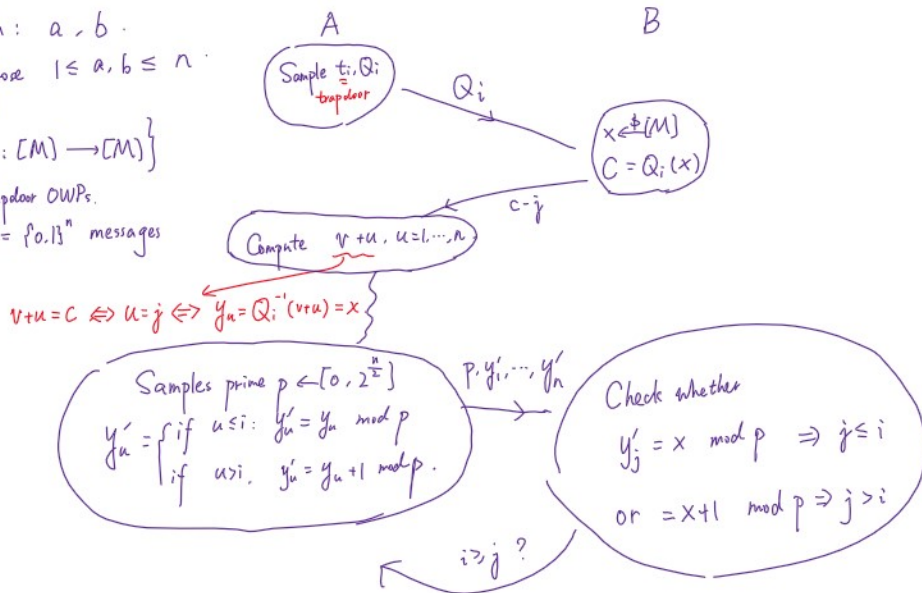 : a, b.
1 ≤ a, b ≤ n.
: [M] → [M] }
OWPs.
= {0,1}ⁿ messages
A
B
Sample tᵢ, Qᵢ
trapdoor
Qᵢ
x ←$ [M]
C = Qᵢ(x)
c-j
Compute v+u, u=1,⋯,n
v+u=C ⇔ u=j ⇔ yᵤ = Qᵢ⁻¹(v+u) = x
Samples prime p ← [0, 2^{n/2}]
yᵤ' = { if u≤i: yᵤ' = yᵤ mod p
if u>i, yᵤ' = yᵤ+1 mod p.
p, y₁',⋯, yₙ'
Check whether
yⱼ' = x mod p ⇒ j ≤ i
or = x+1 mod p ⇒ j > i
i ≥ j ?